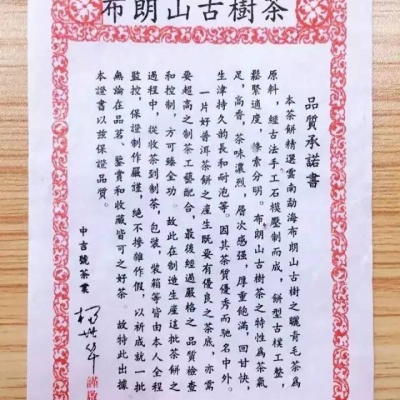 布朗山古樹茶
品質承諾書
本茶餅精選雲南勐海布朗山古樹之曬青毛茶爲
原料，經古法手工石模壓制而成，餅型古樸工整，
鬆緊適度，條索分明。布朗山古樹茶之特性爲茶氣
足，高香，茶味濃烈，層次感强，厚重飽滿，回甘快，
生津持久韵長和耐泡等。因其茶質優秀而馳名中外。
一片好普洱茶餅之産生既要有優良之茶底，亦需
要超高之制茶工藝配合，最後經過嚴格之品質檢查
和控制，方可臻全功。故此在制造生産這批茶餅之
過程中，從收茶到制茶，包裝，裝箱等皆由本人全程
監控，保證制作嚴謹，絕不摻雜作假，以祈成就一批
無論在品茗、鑒賞和收藏皆可之好茶。故特此出據
本證書以兹保證品質。
中吉號茶業
謹啟